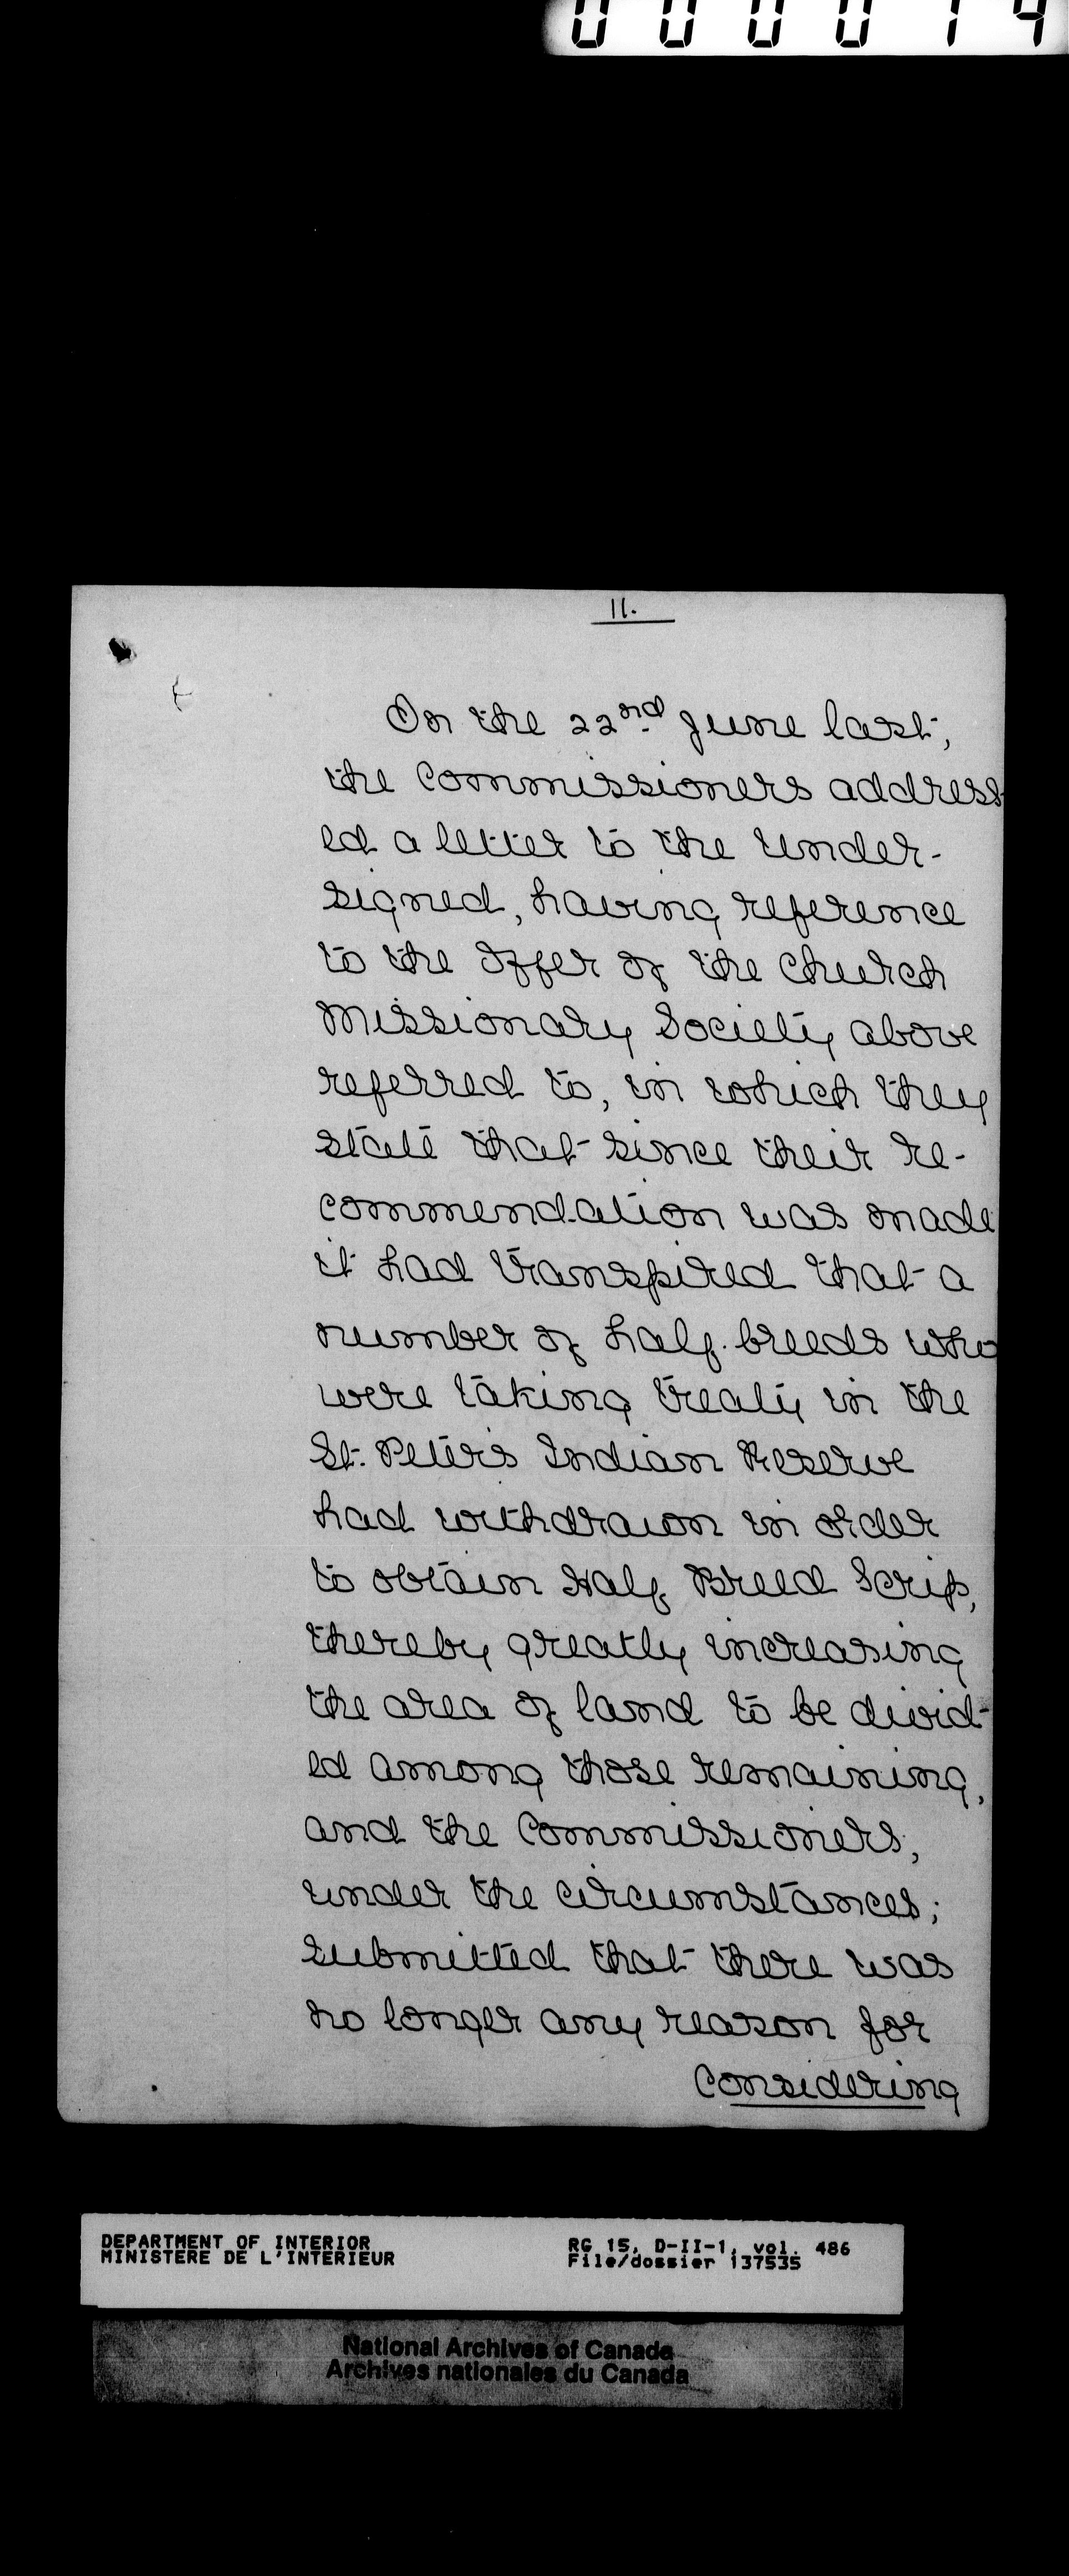 000014
11.
On the 22nd June last,
the Commissioners address-
ed a letter to the under-
signed, having reference
to the offer of the Church
Missionary Society above
referred to, in which they
state that since their re-
commendation was made
it had transpired that a
number of half-breeds who
were taking treaty in the
St. Peter's Indian Reserve
had withdrawn in order
to obtain Half Breed Scrip,
thereby greatly increasing
the area of land to be divid-
ed among those remaining,
and the Commissioners,
under the circumstances,
submitted that there was
no longer any reason for
considering
DEPARTMENT OF INTERIOR
MINISTERE DE L'INTERIEUR
RG 15, D-II-1, vol. 486
File/dossier 137535
National Archives of Canada
Archives nationales du Canada